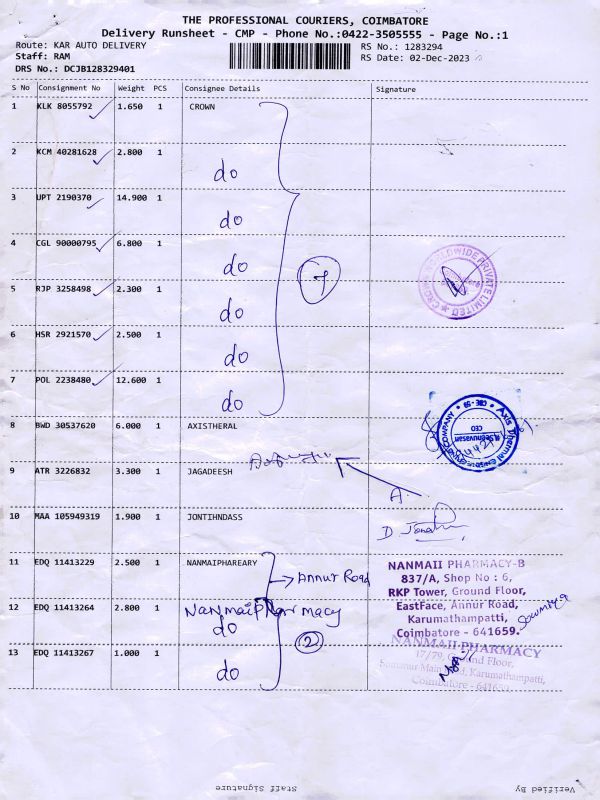 THE PROFESSIONAL COURIERS, COIMBATORE
Delivery Runsheet - CMP - Phone No.:0422-3505555 - Page No.:1
Route: KAR AUTO DELIVERY
RS No.: 1283294
Staff: RAM
RS Date: 02-Dec-2023
DRS No.: DCJB128329401
S No Consignment No Weight PCS Consignee Details Signature
1 KLK 8055792 1.650 1 CROWN
2 KCM 40281628 2.800 1 do
3 UPT 2190370 14.900 1 do
4 CGL 90000795 6.800 1 do
5 RJP 3258498 2.300 1 do
6 HSR 2921570 2.500 1 do
7 POL 2238480 12.600 1 do
7
8 BWD 30537620 6.000 1 AXISTHERAL
9 ATR 3226832 3.300 1 JAGADEESH
A.
10 MAA 105949319 1.900 1 JONTIHNDASS
11 EDQ 11413229 2.500 1 NANMAIPHAREARY
Annur Road
NANMAII PHARMACY-B
837/A, Shop No : 6,
RKP Tower, Ground Floor,
EastFace, Annur Road,
Karumathampatti,
Coimbatore - 641659.
Sowmiya
12 EDQ 11413264 2.800 1 Nanmaipharmacy
do
2
13 EDQ 11413267 1.000 1 do
NANMAII PHARMACY
17/79, Ground Floor,
Main Road, Karumathampatti,
Coimbatore - 641659
Staff Signature
Verified By